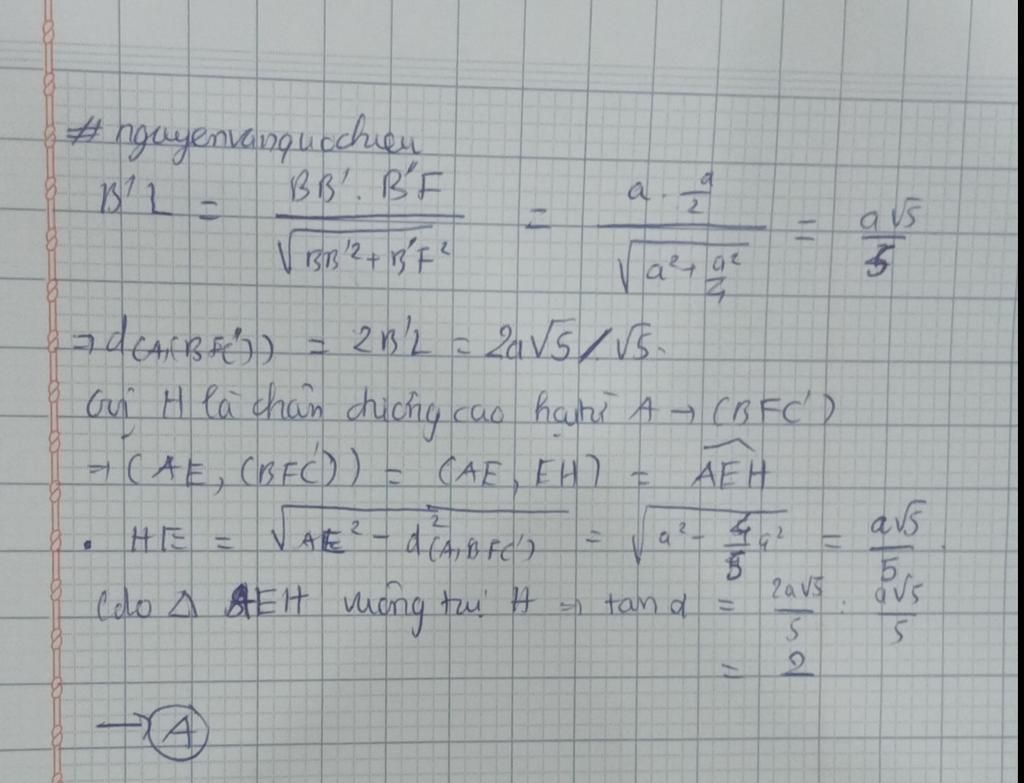 # nguyenvanquocchieu
B'L = BB'. B'F / √(BB'² + B'F²) = a . a/2 / √(a² + a²/4) = a√5/5
⇒ d(A,(BFC')) = 2B'L = 2a√5/√5.
Gọi H là chân đường cao hạ từ A → (BFC')
⇒ (AE, (BFC')) = (AE, EH) = AEH
• HE = √(AE² - d²(A,BFC')) = √(a² - 4/5 a²) = a√5/5.
(do Δ AEH vuông tại H ⇒ tan α = 2a√5/5 : a√5/5
= 2
→ A